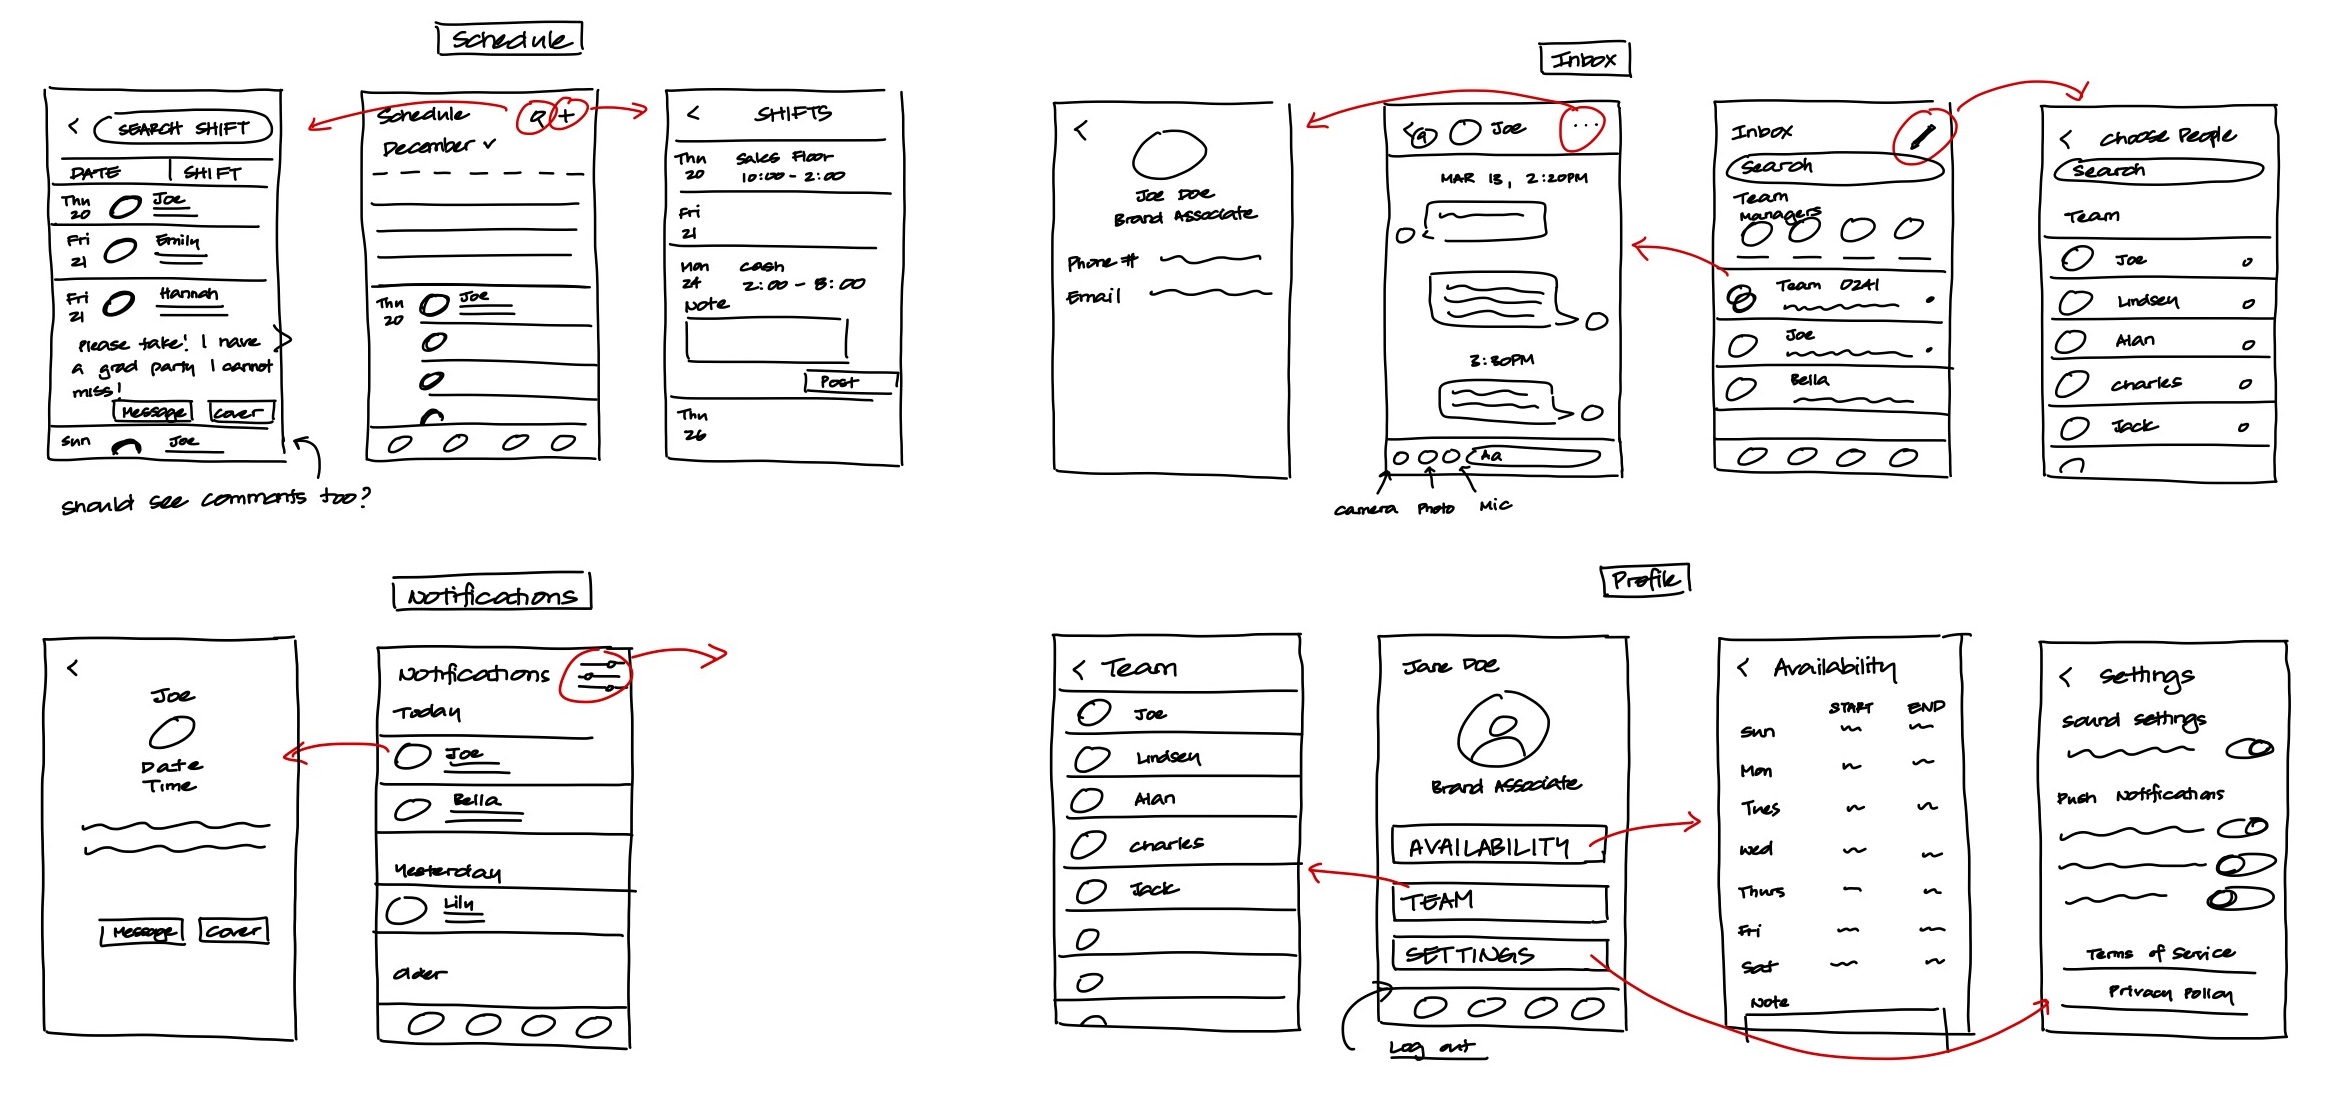 Schedule
< SEARCH SHIFT
DATE | SHIFT
Thu 20 Joe
Fri 21 Emily
Fri 21 Hannah
Please take! I have
a grad party I cannot
miss!
Message Cover
Sun Joe
Should see comments too?
Schedule +
December
Thu 20 Joe
< SHIFTS
Thu 20 Sales Floor
10:00 - 2:00
Fri 21
Mon 24 Cash
2:00 - 8:00
Note
Post
Thu 26
Inbox
<
Joe Doe
Brand Associate
Phone #
Email
< Joe ...
MAR 13, 2:20PM
3:30PM
Aa
Camera Photo Mic
Inbox
Search
Team
Managers
Team 0241
Joe
Bella
< Choose People
Search
Team
Joe
Lindsey
Alan
Charles
Jack
Notifications
<
Joe
Date
Time
Message Cover
Notifications
Today
Joe
Bella
Yesterday
Lily
Older
Profile
< Team
Joe
Lindsey
Alan
Charles
Jack
Jane Doe
Brand Associate
AVAILABILITY
TEAM
SETTINGS
Log out
< Availability
START END
Sun
Mon
Tues
Wed
Thurs
Fri
Sat
Note
< Settings
Sound Settings
Push Notifications
Terms of Service
Privacy Policy